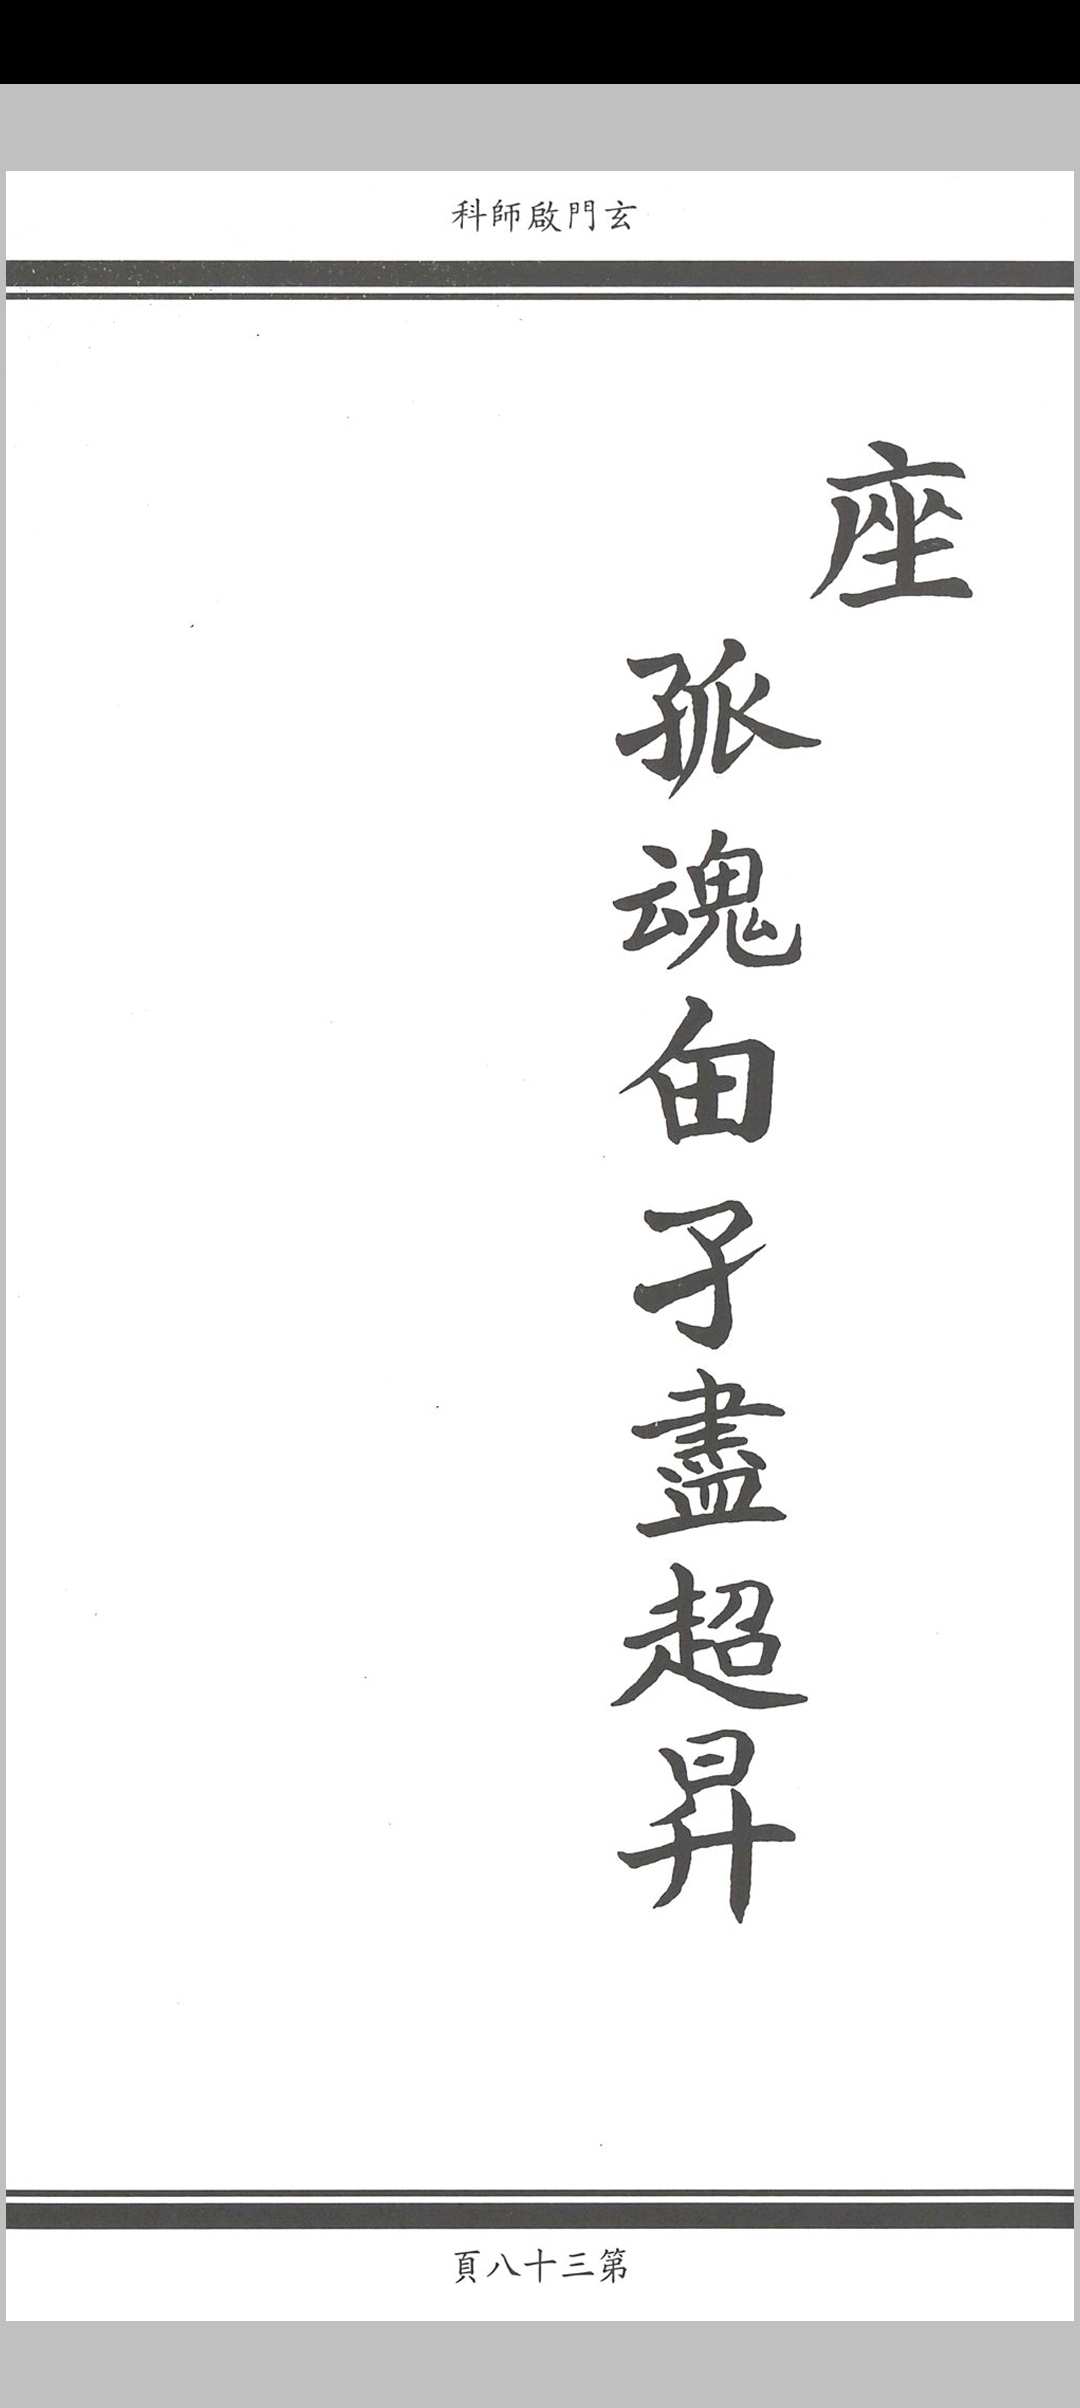 玄門啟師科
座
孤魂甶孑盡超昇
第三十八頁